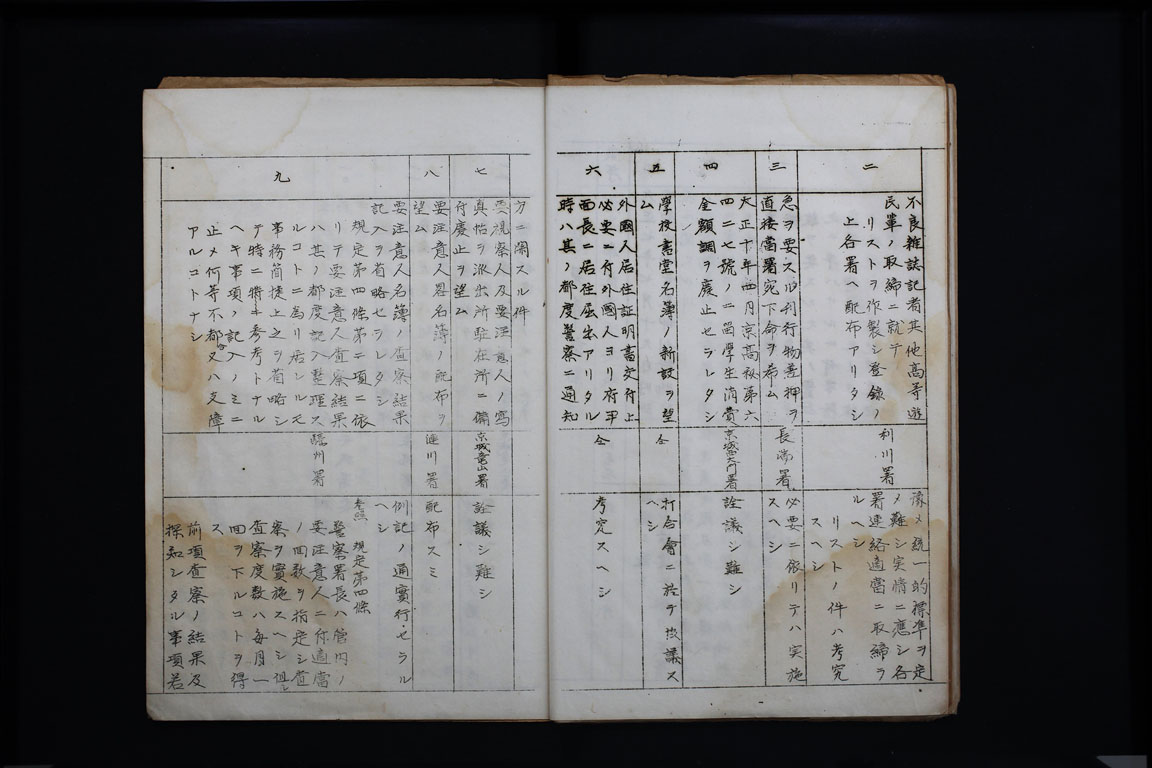 二
不良雑誌記者其他高等遊
民輩ノ取締ニ就テ
リストヲ作製シ登録ノ
上各署ヘ配布アリタシ
利川署
豫メ統一的標準ヲ定
メ難シ実情ニ應シ各
署連絡適當ニ取締ヲ
ルヘシ
リストノ件ハ考究
スヘシ
三
急ヲ要スル刊行物差押ヲ
直接當署宛下命ヲ希ム
長湍署
必要ニ依リテハ実施
スヘシ
四
大正十年四月京高秘第六
四二七號ノ二留學生消費
金額調ヲ廃止セラレタシ
京城西大門署
詮議シ難シ
五
學校書堂名簿ノ新設ヲ望
ム
仝
打合會ニ於テ協議ス
ヘシ
六
外國人居住証明書交付上
必要ニ付外國人ヨリ府尹
面長ニ居住届出アリタル
時ハ其ノ都度警察ニ通知
仝
考究スヘシ
方ニ関スル件
七
要視察人及要注意人ノ寫
真帖ヲ派出所駐在所ニ備
付廃止ヲ望ム
京城龍山署
詮議シ難シ
八
要注意人畧名簿ノ配布ヲ
望ム
漣川署
配布スミ
九
要注意人名簿ノ査察結果
記入ヲ省略セラレタシ
規定第四條第二項ニ依
リテ要注意人査察結果
ハ其ノ都度記入整理ス
ルコトニ為リ居レルモ
事務簡捷上之ヲ省略シ
テ特ニ特キ参考トナル
ヘキ事項ノ記入ノミニ
止メ何等不都合又ハ支障
アルコトナシ
驪州署
例記ノ通實行セラル
ヘシ
参照 規定第四條
警察署長ハ管内ノ
要注意人ニ付適當
ノ回数ヲ指定シ査
察ヲ實施スヘシ但シ
査察度数ハ毎月一
回ヲ下ルコトヲ得
ス
前項査察ノ結果及
探知シタル事項若